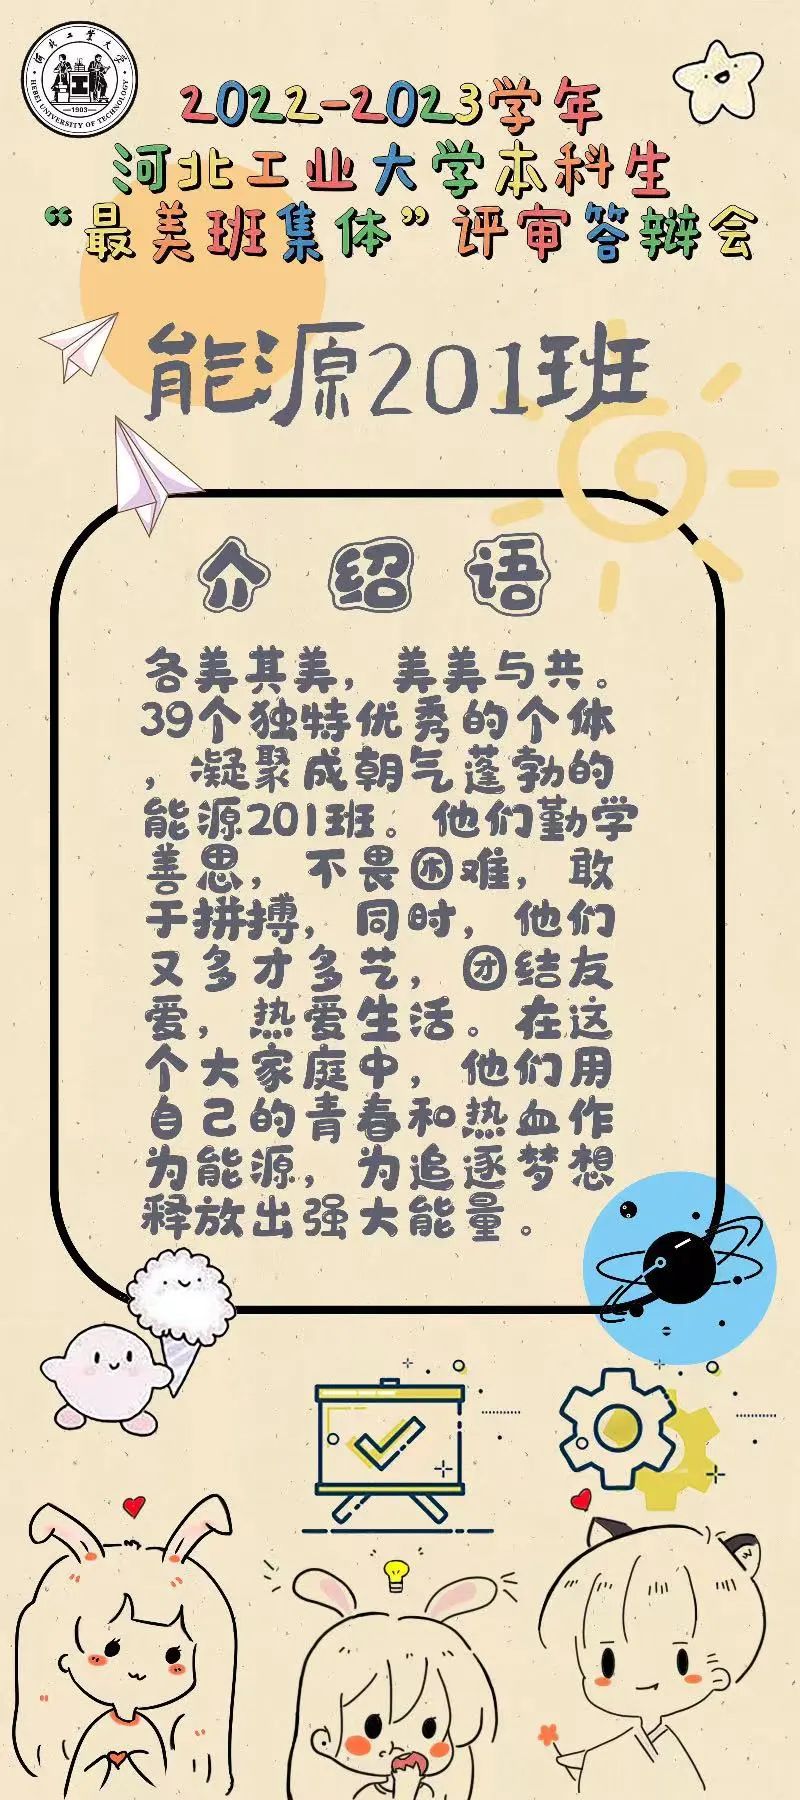 河北工业大学
HEBEI UNIVERSITY OF TECHNOLOGY
1903
2022-2023学年
河北工业大学本科生
“最美班集体”评审答辩会
能源201班
介绍语
各美其美，美美与共。
39个独特优秀的个体
，凝聚成朝气蓬勃的
能源201班。他们勤学
善思，不畏困难，敢
于拼搏，同时，他们
又多才多艺，团结友
爱，热爱生活。在这
个大家庭中，他们用
自己的青春和热血作
为能源，为追逐梦想
释放出强大能量。